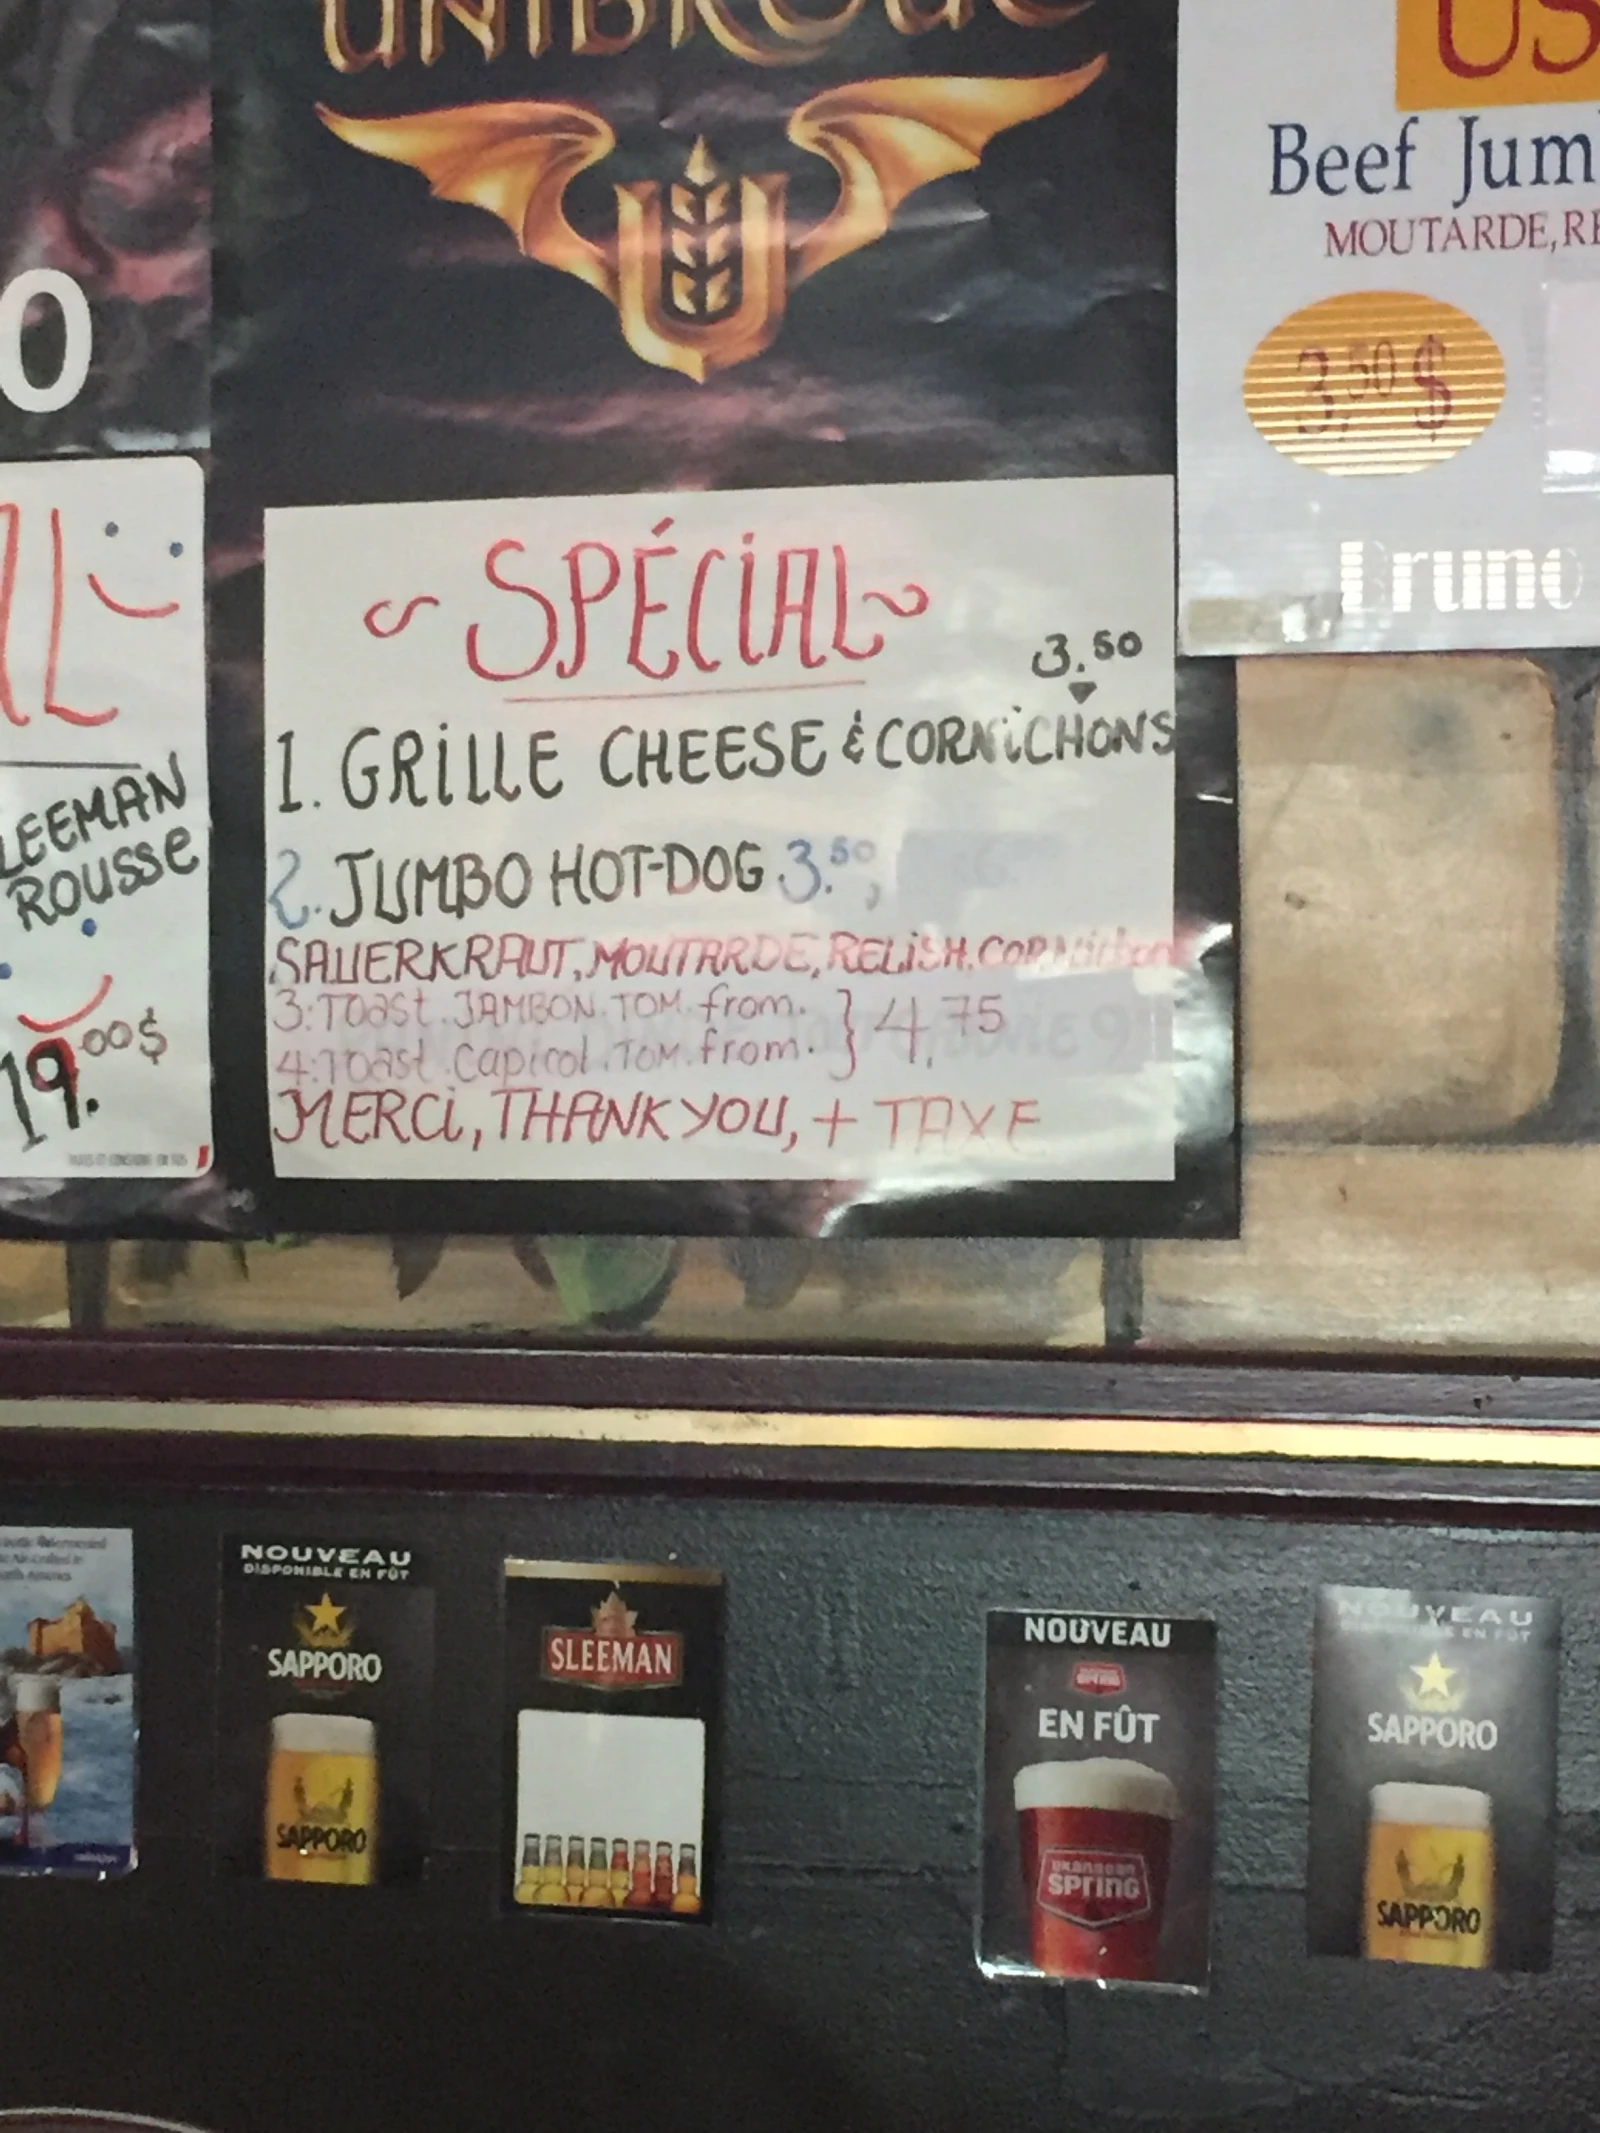 UNIBROUE
US
Beef Jum
MOUTARDE, RE
3,50 $
Bruno
0
AL
LEEMAN
ROUSSE
19.00$
SPÉCIAL
3.50
1. GRILLE CHEESE & CORNICHONS
2. JUMBO HOT-DOG 3.50,
SAUERKRAUT, MOUTARDE, RELISH. CORNICHON
3: TOast. JAMBON. TOM. from. } 4,75
4: TOast. Capicol. TOM. from.
MERCI, THANK YOU, + TAXE
NOUVEAU
DISPONIBLE EN FÛT
SAPPORO
SAPPORO
SLEEMAN
NOUVEAU
OKANAGAN SPRING
EN FÛT
OKANAGAN
SPRING
NOUVEAU
DISPONIBLE EN FÛT
SAPPORO
SAPPORO